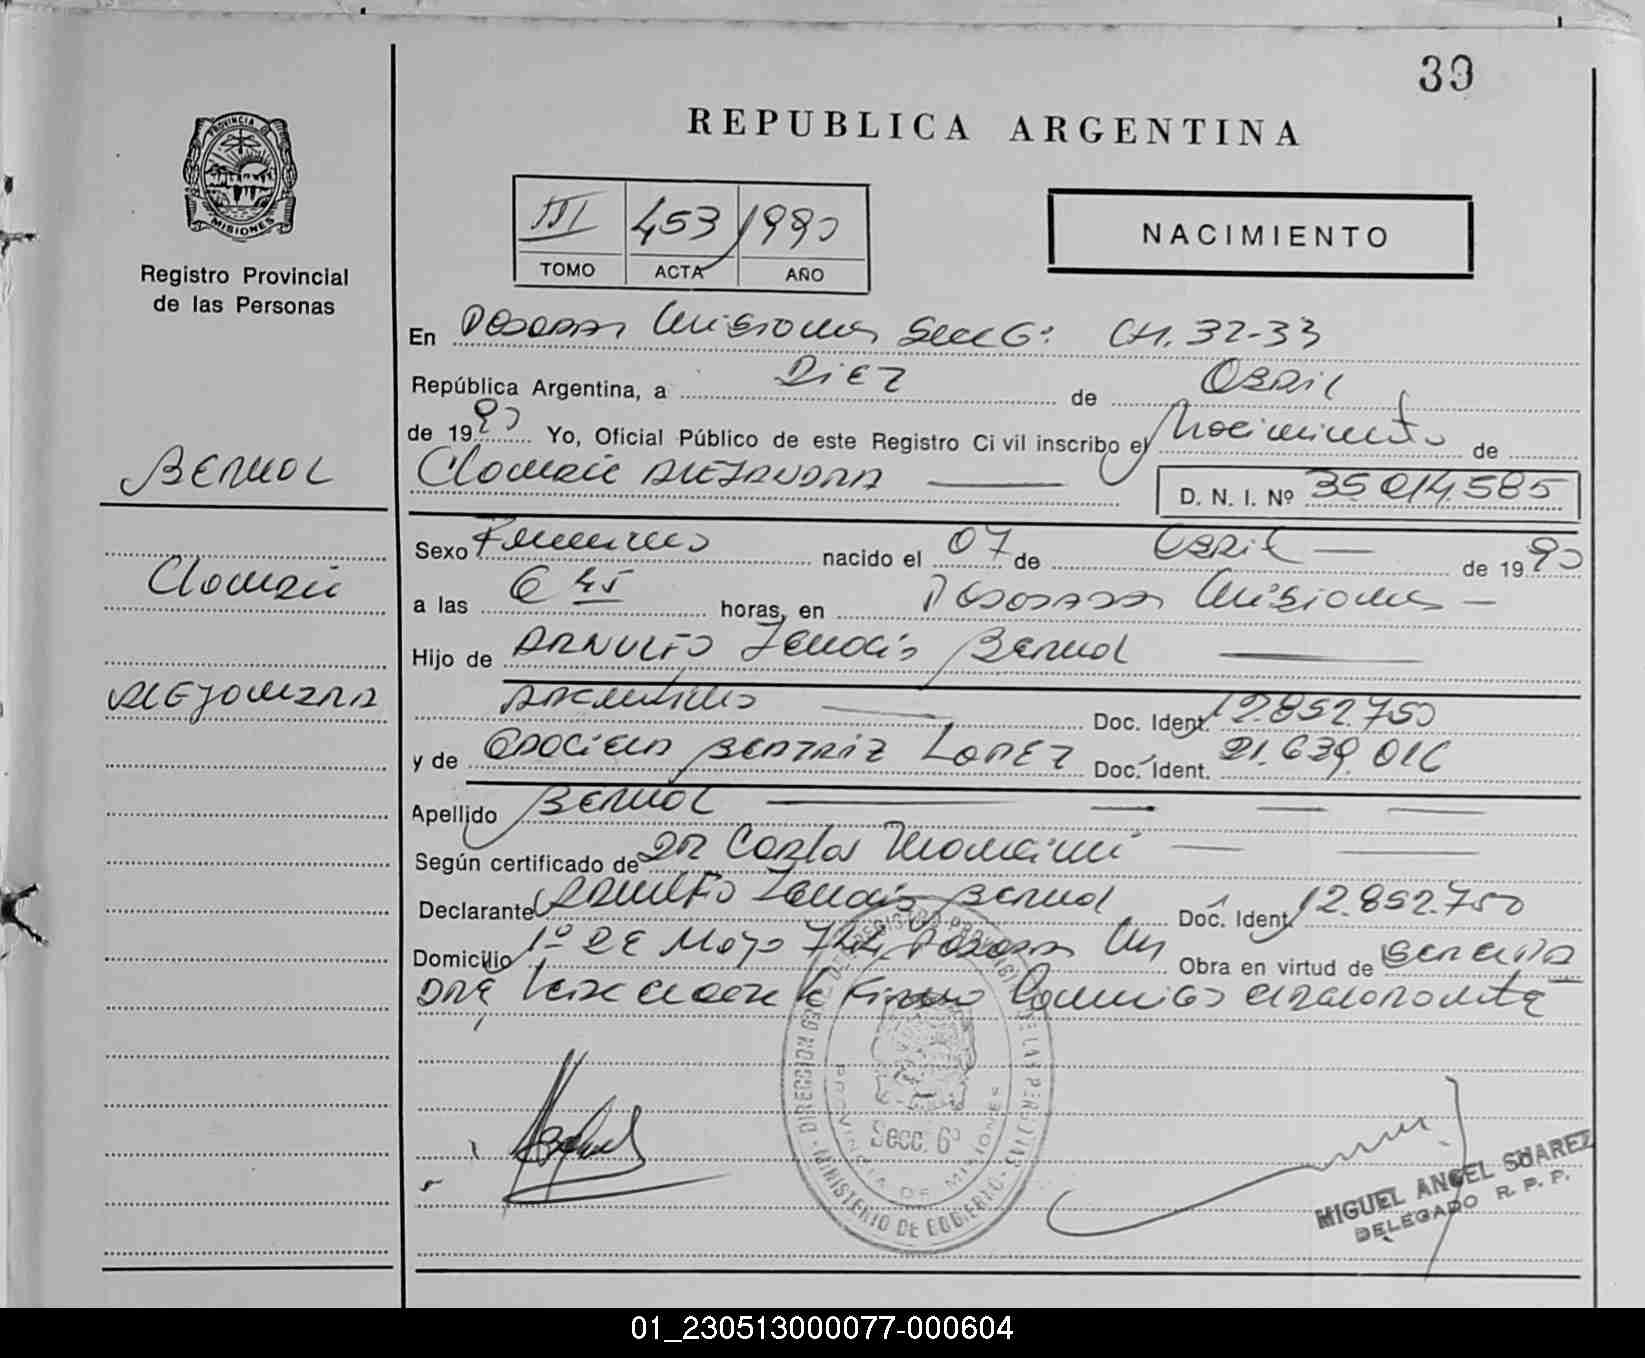 39
REPUBLICA ARGENTINA
PROVINCIA DE MISIONES
Registro Provincial
de las Personas
III 453 1990
TOMO ACTA AÑO
NACIMIENTO
En Posadas Misiones Secc 6ª CH. 32-33
República Argentina, a Diez de Abril
de 1990 Yo, Oficial Público de este Registro Civil inscribo el Nacimiento de
Alejandra
D. N. I. Nº 35.014.585
Bernal
Sexo Femenino nacido el 07 de Abril de 1990
a las 6 45 horas, en Posadas Misiones
Hijo de Arnulfo Bernal
Alejandra
Argentino Doc. Ident. 12.852.750
y de Graciela Beatriz Lopez Doc. Ident. 21.639.016
Apellido Bernal
Según certificado de Dr Carlos
Declarante Arnulfo Bernal Doc. Ident. 12.852.750
Domicilio 1º de Mayo Posadas Mis Obra en virtud de
DIRECCION GRAL. DE REGISTRO PROVINCIAL DE LAS PERSONAS
MINISTERIO DE GOBIERNO
PROVINCIA DE MISIONES
Secc. 6ª
MIGUEL ANGEL SUAREZ
DELEGADO R. P. P.
01_230513000077-000604